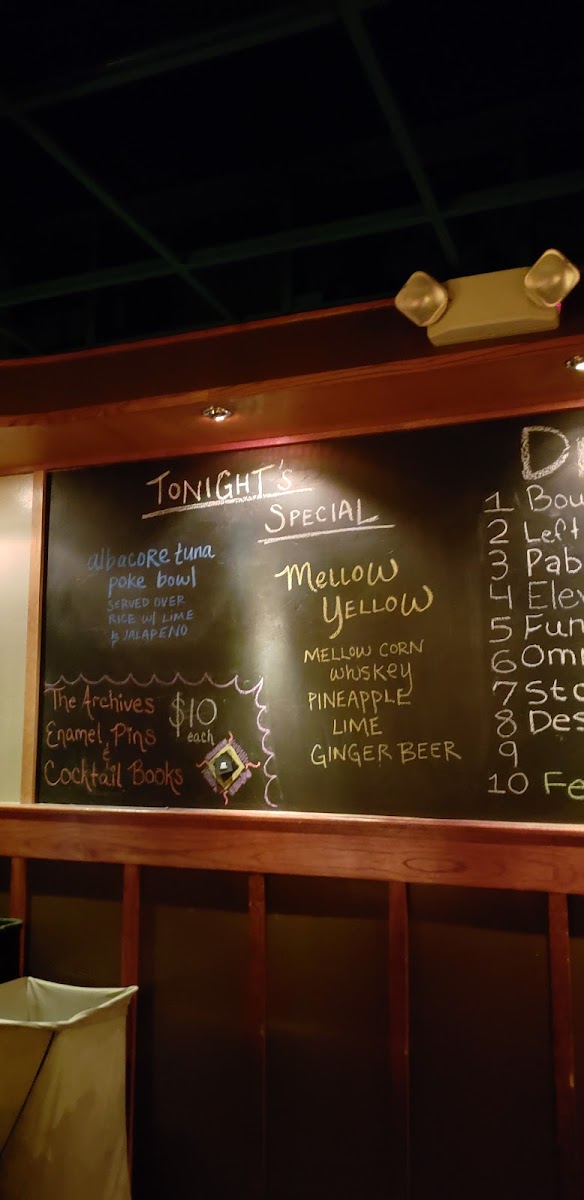 TONIGHT'S
SPECIAL
albacore tuna
poke bowl
SERVED OVER
RICE W/ LIME
& JALAPENO
MELLOW
YELLOW
MELLOW CORN
whiskey
PINEAPPLE
LIME
GINGER BEER
The Archives
Enamel Pins
&
Cocktail Books
$10
each
1
2 Left
3 Pab
4 Elev
5 Fun
6 Omn
7 Sto
8 Des
9
10 Fe